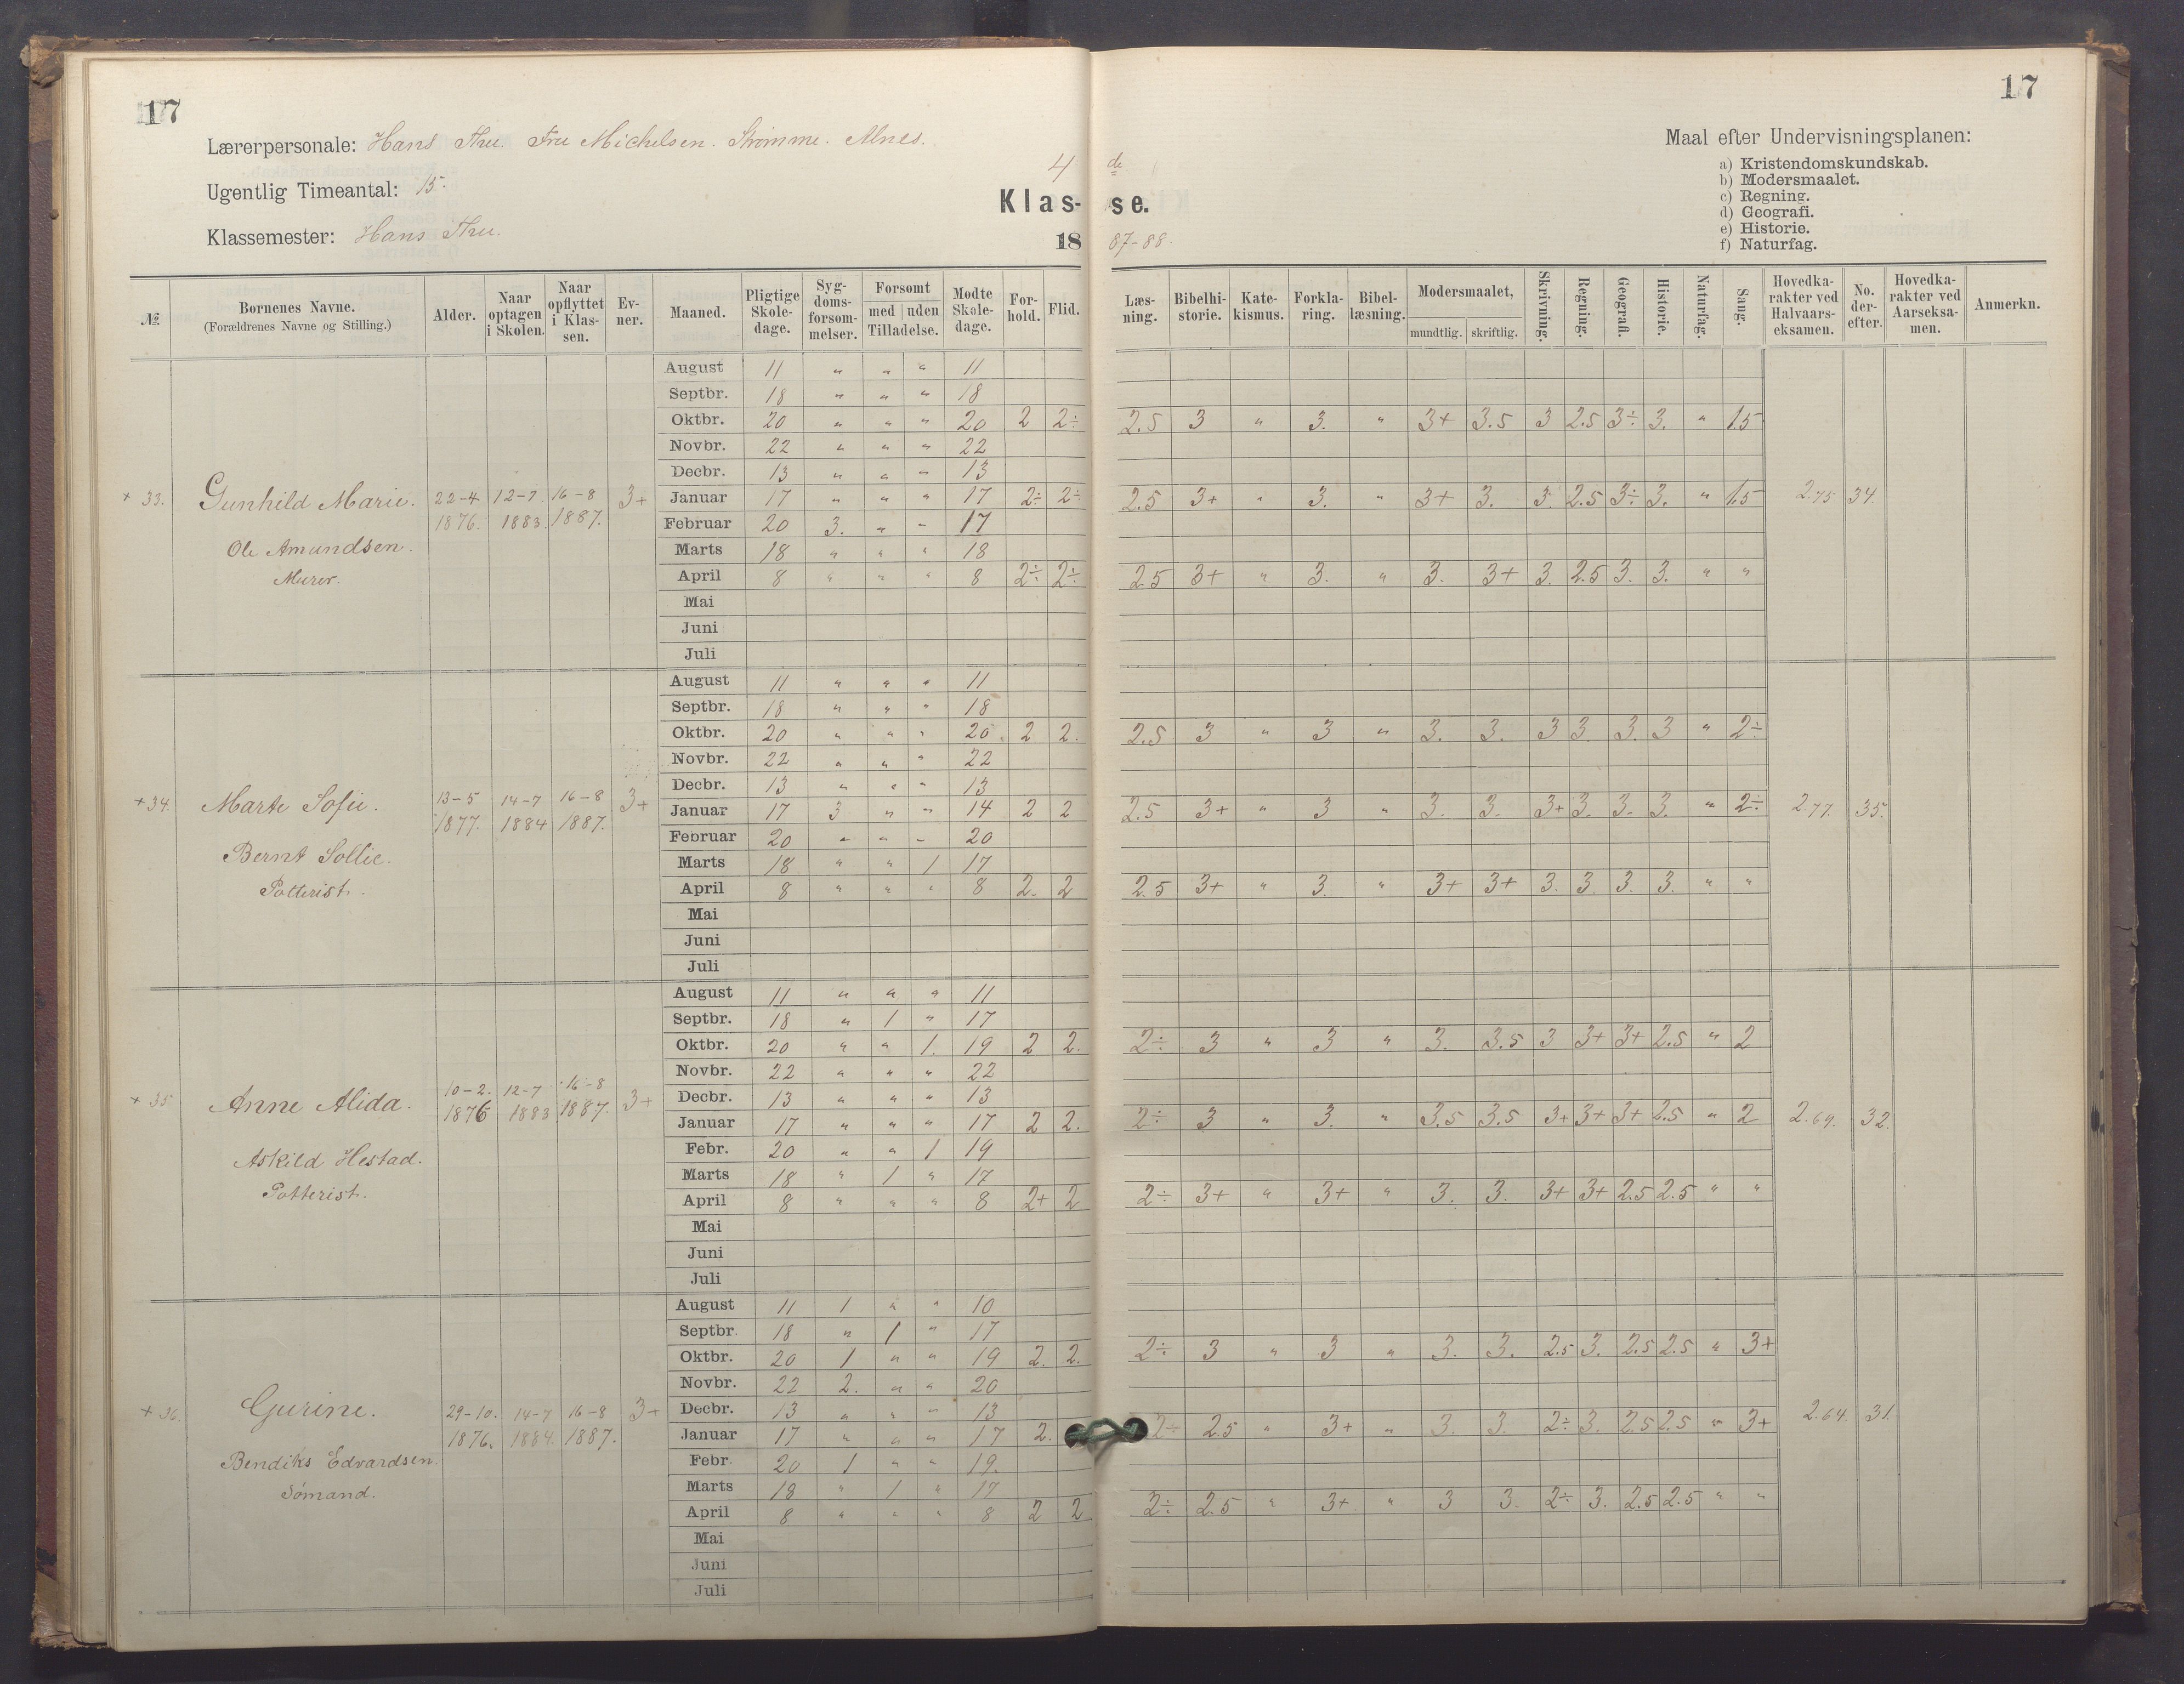 17
17
Lærerpersonale: Hans Thu. Fru Michelsen. Strømme. Alnes.
Ugentlig Timeantal: 15.
Klassemester: Hans Thu.
4 de
Klas- se.
18 87-88.
Maal efter Undervisningsplanen:
a) Kristendomskundskab.
b) Modersmaalet.
c) Regning.
d) Geografi.
e) Historie.
f) Naturfag.
№ | Bornenes Navne. (Forældrenes Navne og Stilling.) | Alder. | Naar optagen i Skolen. | Naar opflyttet i Klas-sen. | Ev-ner. | Maaned. | Pligtige Skole-dage. | Syg-doms-forsom-melser. | Forsomt med | uden Tilladelse. | Modte Skole-dage. | For-hold. | Flid. | Læs-ning. | Bibelhi-storie. | Kate-kismus. | Forkla-ring. | Bibel-læsning. | Modersmaalet, mundtlig. | skriftlig. | Skrivning. | Regning. | Geografi. | Historie. | Naturfag. | Sang. | Hovedka-rakter ved Halvaars-eksamen. | No. der-efter. | Hovedka-rakter ved Aarseksa-men. | Anmerkn.
+ 33. Gunhild Marie. 22-4 1876. 12-7 1883. 16-8 1887. 3+
Ole Amundsen.
Murer.
August 11 " " " 11
Septbr. 18 " " " 18
Oktbr. 20 " " " 20 2 2÷ 2.5 3 " 3. " 3+ 3.5 3 2.5 3÷ 3. " 1.5
Novbr. 22 " " " 22
Decbr. 13 " " " 13
Januar 17 " " " 17 2÷ 2÷ 2.5 3+ " 3. " 3+ 3. 3. 2.5 3÷ 3. " 1.5 2.75 34.
Februar 20 3. " " 17
Marts 18 " " " 18
April 8 " " " 8 2÷ 2÷ 2.5 3+ " 3. " 3. 3+ 3. 2.5 3. 3. " "
Mai
Juni
Juli
+ 34. Marte Sofie. 13-5 1877. 14-7 1884 16-8 1887. 3+
Bernt Sollie.
Potterist.
August 11 " " " 11
Septbr. 18 " " " 18
Oktbr. 20 " " " 20. 2 2. 2.5 3 " 3 " 3. 3. 3 3. 3. 3 " 2÷
Novbr. 22 " " " 22
Decbr. 13 " " " 13
Januar 17 3 " " 14 2 2 2.5 3+ " 3 " 3. 3. 3+ 3. 3. 3. " 2÷ 2.77. 35.
Februar 20 " " " 20
Marts 18 " " 1 17
April 8 " " " 8 2. 2 2.5 3+ " 3. " 3+ 3+ 3. 3. 3. 3. " "
Mai
Juni
Juli
+ 35 Anne Alida. 10-2. 1876 12-7 1883 16-8 1887. 3+
Askild Hestad.
Potterist.
August 11 " " " 11
Septbr. 18 " 1 " 17
Oktbr. 20 " " 1. 19 2 2. 2÷ 3 " 3 " 3. 3.5 3 3+ 3+ 2.5 " 2
Novbr. 22 " " " 22
Decbr. 13 " " " 13
Januar 17 " " " 17 2 2. 2÷ 3 " 3. " 3.5 3.5 3+ 3+ 3+ 2.5 " 2 2.69. 32.
Febr. 20 " " 1 19
Marts 18 " 1 " 17
April 8 " " " 8 2+ 2 2÷ 3+ " 3+ " 3. 3. 3+ 3+ 2.5 2.5 " "
Mai
Juni
Juli
+ 36. Gurine. 29-10. 1876. 14-7 1884. 16-8 1887. 3+
Bendiks Edvardsen.
Sömand.
August 11 1 " " 10
Septbr. 18 " 1 " 17
Oktbr. 20 1 " " 19 2. 2. 2÷ 3 " 3 " 3. 3. 2.5 3. 2.5 2.5 " 3+
Novbr. 22 2. " " 20
Decbr. 13 " " " 13
Januar 17 " " " 17 2. 2÷ 2.5 " 3+ " 3. 3. 2÷ 3. 2.5 2.5 " 3+ 2.64. 31.
Febr. 20 1 " " 19.
Marts 18 " 1 " 17
April 8 " " " 8 2 2 2÷ 2.5 " 3+ " 3 3. 2÷ 3. 2.5 2.5 " "
Mai
Juni
Juli